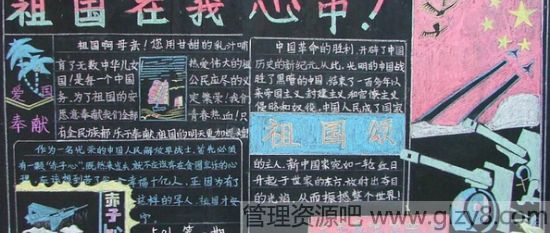 祖国在我心中!
祖国啊母亲!您用甘甜的乳汁哺
育了无数中华儿女
国!是每一个中国
务、为了祖国的安
愿意奉献我们全部
热爱伟大的祖
公民应尽的义
定繁荣!我们
青春热血!只
有全民族都乐于奉献,祖国的明天更加繁
爱国
奉献
作为一名光荣的中国人民解放军战士,首先必须
有一颗"赤子心"。既然来当兵,就不应该存在贪图
心
幸福千万人,正因为有了
这样的军人,祖国才安
宁。
赤子
中国革命的胜利,开辟了中国
历史的新纪元。从此,光明的中国战
胜了黑暗的中国,结束了一百多年以
来帝国主义、封建主义、和官僚主义
侵略和奴役,中国人民成了国家
祖国颂
的主人,新中国宛如一轮红日
升起于世界的东方,放射出夺目
的光焰,从而振撼整个世界!
管理资源吧 www.glzy8.com